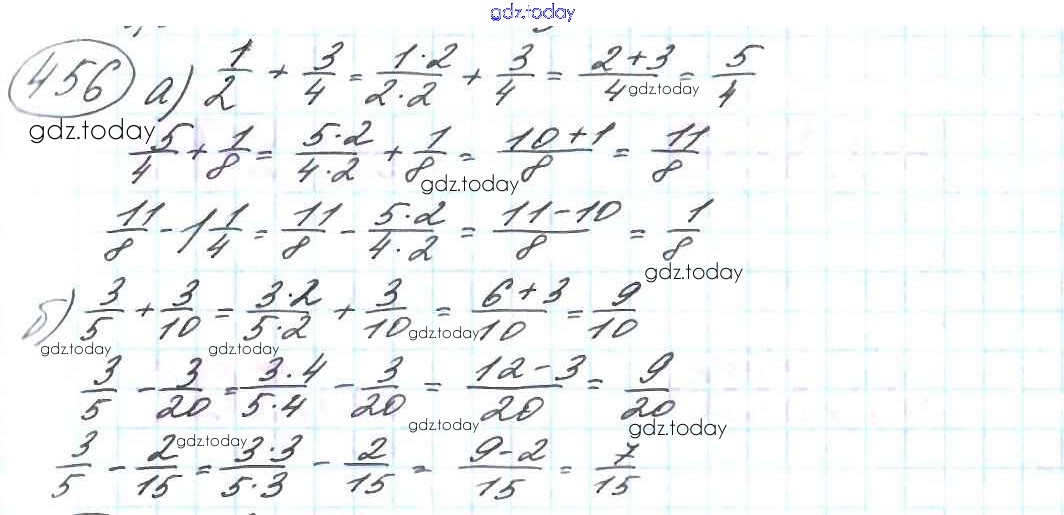 gdz.today
456 а) 1/2 + 3/4 = 1·2/2·2 + 3/4 = 2+3/4 = 5/4
gdz.today
gdz.today
5/4 + 1/8 = 5·2/4·2 + 1/8 = 10+1/8 = 11/8
gdz.today
11/8 - 1 1/4 = 11/8 - 5·2/4·2 = 11-10/8 = 1/8
gdz.today
б) 3/5 + 3/10 = 3·2/5·2 + 3/10 = 6+3/10 = 9/10
gdz.today gdz.today gdz.today
3/5 - 3/20 = 3·4/5·4 - 3/20 = 12-3/20 = 9/20
gdz.today gdz.today gdz.today
3/5 - 2/15 = 3·3/5·3 - 2/15 = 9-2/15 = 7/15